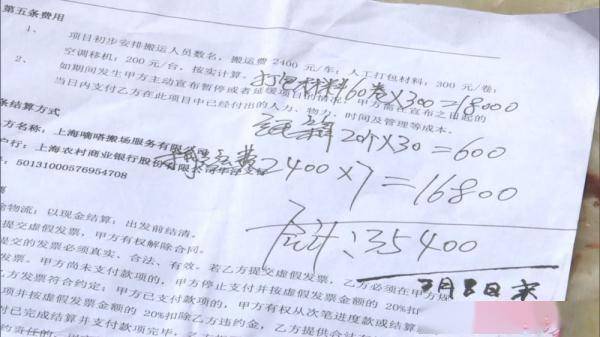 第五条费用
1、 项目初步安排搬运人员数名，搬运费 2400 元/车；人工打包材料：300 元/卷；
空调移机：200 元/台，按实计算。
2、 如期间发生甲方主动宣布暂停或者延缓项目的情况，甲方需在宣布之日起的
当日内支付乙方在此项目中已经付出的人力、物力、时间及管理等成本。
打包材料60卷×300=18000
条结算方式
20个×30=600
方名称：上海嘀嗒搬场服务有限公司
户行：上海农村商业银行股份有限公司
搬运费2400×7=16800
：50131000576954708
合计：35400
物流：以现金结算：出发前结清。
提交虚假发票，甲方有权解除合同。
提交的发票必须真实、合法、有效。若乙方提交虚假发票，乙方必须在甲方
发票。甲方尚未支付款项的，甲方停止支付并按虚假发票金额的 20%扣
乙方发票符合约定；甲方已支付款项的，甲方有权从次笔进度款或结算
项并按虚假发票金额的 20%扣除乙方违约金，乙方提供合法有
付已完成结算并支付款项完毕，乙方